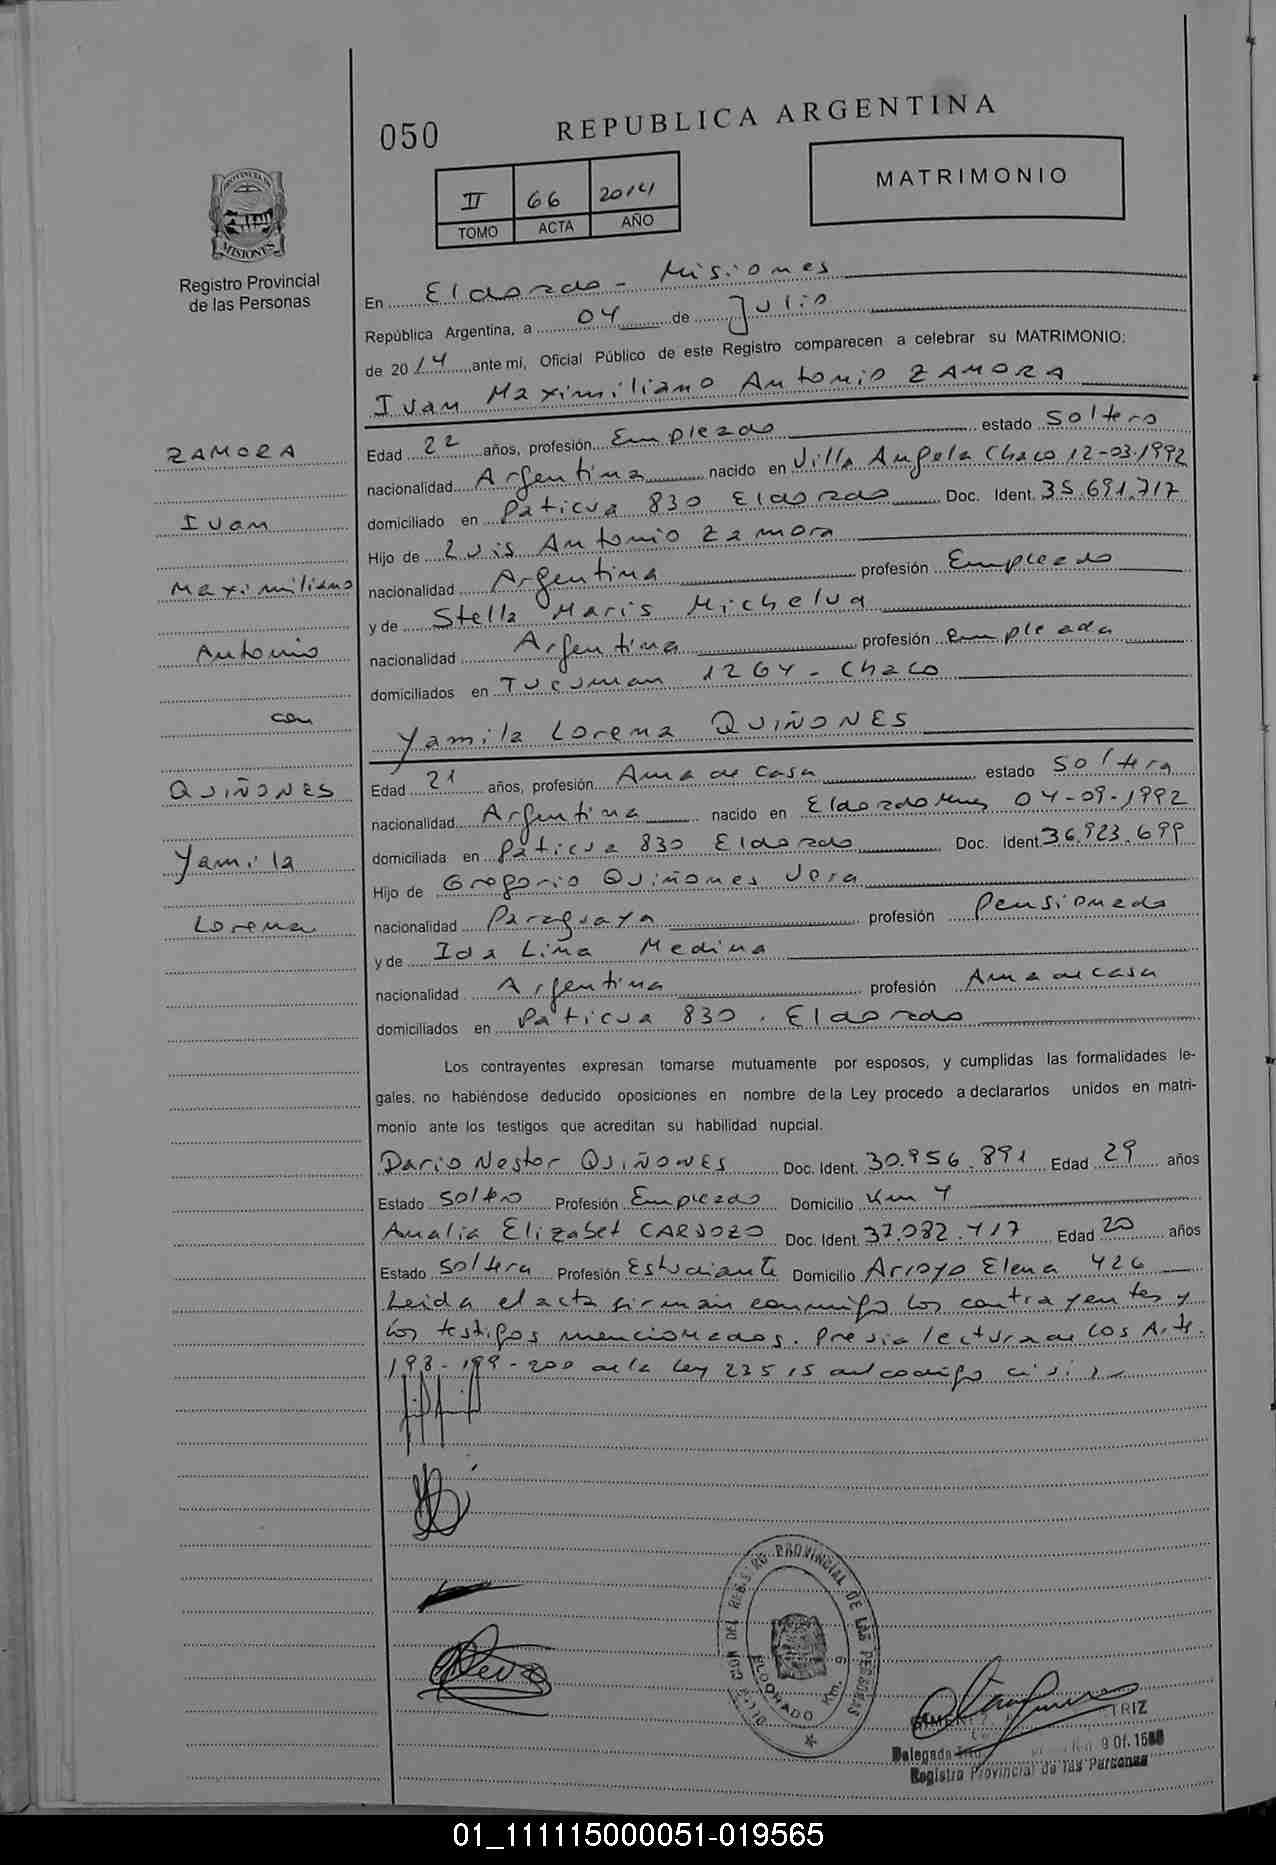 050
REPUBLICA ARGENTINA
MATRIMONIO
II 66 2014
TOMO ACTA AÑO
PROVINCIA DE
MISIONES
Registro Provincial
de las Personas
En Eldorado - Misiones
República Argentina, a 04 de Julio
de 2014 ante mi, Oficial Público de este Registro comparecen a celebrar su MATRIMONIO:
Ivan Maximiliano Antonio ZAMORA
ZAMORA
Edad 22 años, profesión Empleado estado Soltero
nacionalidad Argentina nacido en Villa Angela Chaco 12-03-1992
Ivan
domiciliado en Paticua 830 Eldorado Doc. Ident. 35.691.717
Hijo de Luis Antonio Zamora
Maximiliano
nacionalidad Argentina profesión Empleado
y de Stella Maris Michelud
Antonio
nacionalidad Argentina profesión Empleada
domiciliados en Tucuman 1264 - Chaco
con
Yamila Lorena QUIÑONES
QUIÑONES
Edad 21 años, profesión Ama de casa estado Soltera
nacionalidad Argentina nacido en Eldorado Mnes 04-09-1992
Yamila
domiciliada en Paticua 830 Eldorado Doc. Ident. 36.923.699
Hijo de Gregorio Quiñones Vera
Lorena
nacionalidad Paraguaya profesión Pensionado
y de Ida Lina Medina
nacionalidad Argentina profesión Ama de casa
domiciliados en Paticua 830 . Eldorado
Los contrayentes expresan tomarse mutuamente por esposos, y cumplidas las formalidades le-
gales, no habiéndose deducido oposiciones en nombre de la Ley procedo a declararlos unidos en matri-
monio ante los testigos que acreditan su habilidad nupcial.
Dario Nestor QUIÑONES Doc. Ident. 30.956.891 Edad 29 años
Estado Soltero Profesión Empleado Domicilio Km 4
Analia Elizabet CARDOZO Doc. Ident. 37.082.417 Edad 20 años
Estado Soltera Profesión Estudiante Domicilio Arroyo Elena 426
Leida el acta firman conmigo los contrayentes y
los testigos mencionados. Previa lectura de los Arts.
198-199-200 de la Ley 23515 del codigo civil
DELEGACION DEL REGISTRO PROVINCIAL DE LAS PERSONAS
ELDORADO Km. 9
Delegada 9 Of. 1588
Registro Provincial de las Personas
01_111115000051-019565